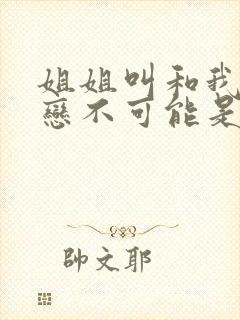 姐姐叫和我
戀不可能是
帥文耶